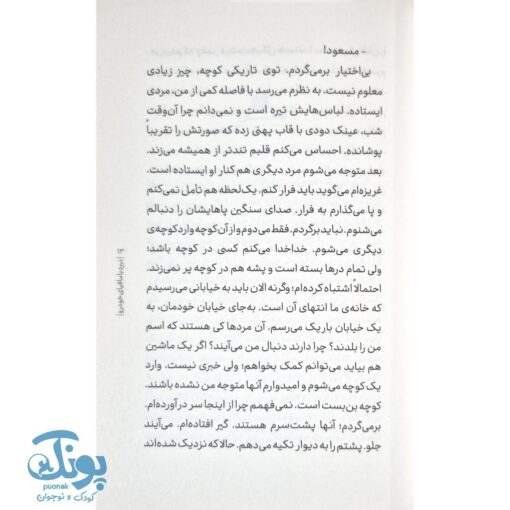 - مسعود!
بی‌اختیار برمی‌گردم. توی تاریکی کوچه، چیز زیادی
معلوم نیست. به نظرم می‌رسد با فاصله کمی از من، مردی
ایستاده. لباس‌هایش تیره است و نمی‌دانم چرا آن‌وقت
شب، عینک دودی با قاب پهنی زده که صورتش را تقریباً
پوشانده. احساس می‌کنم قلبم تندتر از همیشه می‌زند.
بعد متوجه می‌شوم مرد دیگری هم کنار او ایستاده است.
غریزه‌ام می‌گوید باید فرار کنم. یک‌لحظه هم تأمل نمی‌کنم
و پا می‌گذارم به فرار. صدای سنگین پاهایشان را دنبالم
می‌شنوم. نباید برگردم. فقط می‌دوم و از آن کوچه وارد کوچه‌ی
دیگری می‌شوم. خداخدا می‌کنم کسی در کوچه باشد؛
ولی تمام درها بسته است و پشه هم در کوچه پر نمی‌زند.
احتمالاً اشتباه کرده‌ام؛ وگرنه الان باید به خیابانی می‌رسیدم
که خانه‌ی ما انتهای آن است. به‌جای خیابان خودمان، به
یک خیابان باریک می‌رسم. آن مردها کی هستند که اسم
من را بلدند؟ چرا دارند دنبال من می‌آیند؟ اگر یک ماشین
هم بیاید می‌توانم کمک بخواهم؛ ولی خبری نیست. وارد
یک کوچه می‌شوم و امیدوارم آنها متوجه من نشده باشند.
کوچه بن‌بست است. نمی‌فهمم چرا از اینجا سر درآورده‌ام.
برمی‌گردم؛ آنها پشت‌سرم هستند. گیر افتاده‌ام. می‌آیند
جلو. پشتم را به دیوار تکیه می‌دهم. حالا که نزدیک شده‌اند
نبرد با مافیای خودرو
پونک
puonak
کودک و نوجوان